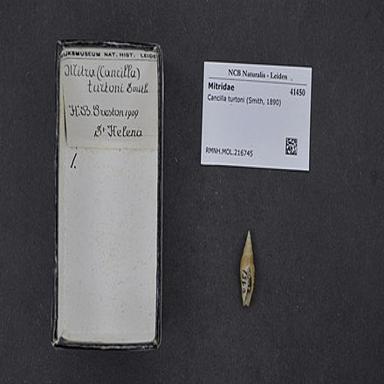 RIJKSMUSEUM NAT. HIST. LEIDEN
Mitra (Cancilla)
turtoni Smith
H.B. Preston 1909
St Helena
1.
NCB Naturalis - Leiden
Mitridae
41450
Cancilla turtoni (Smith, 1890)
RMNH.MOL.216745